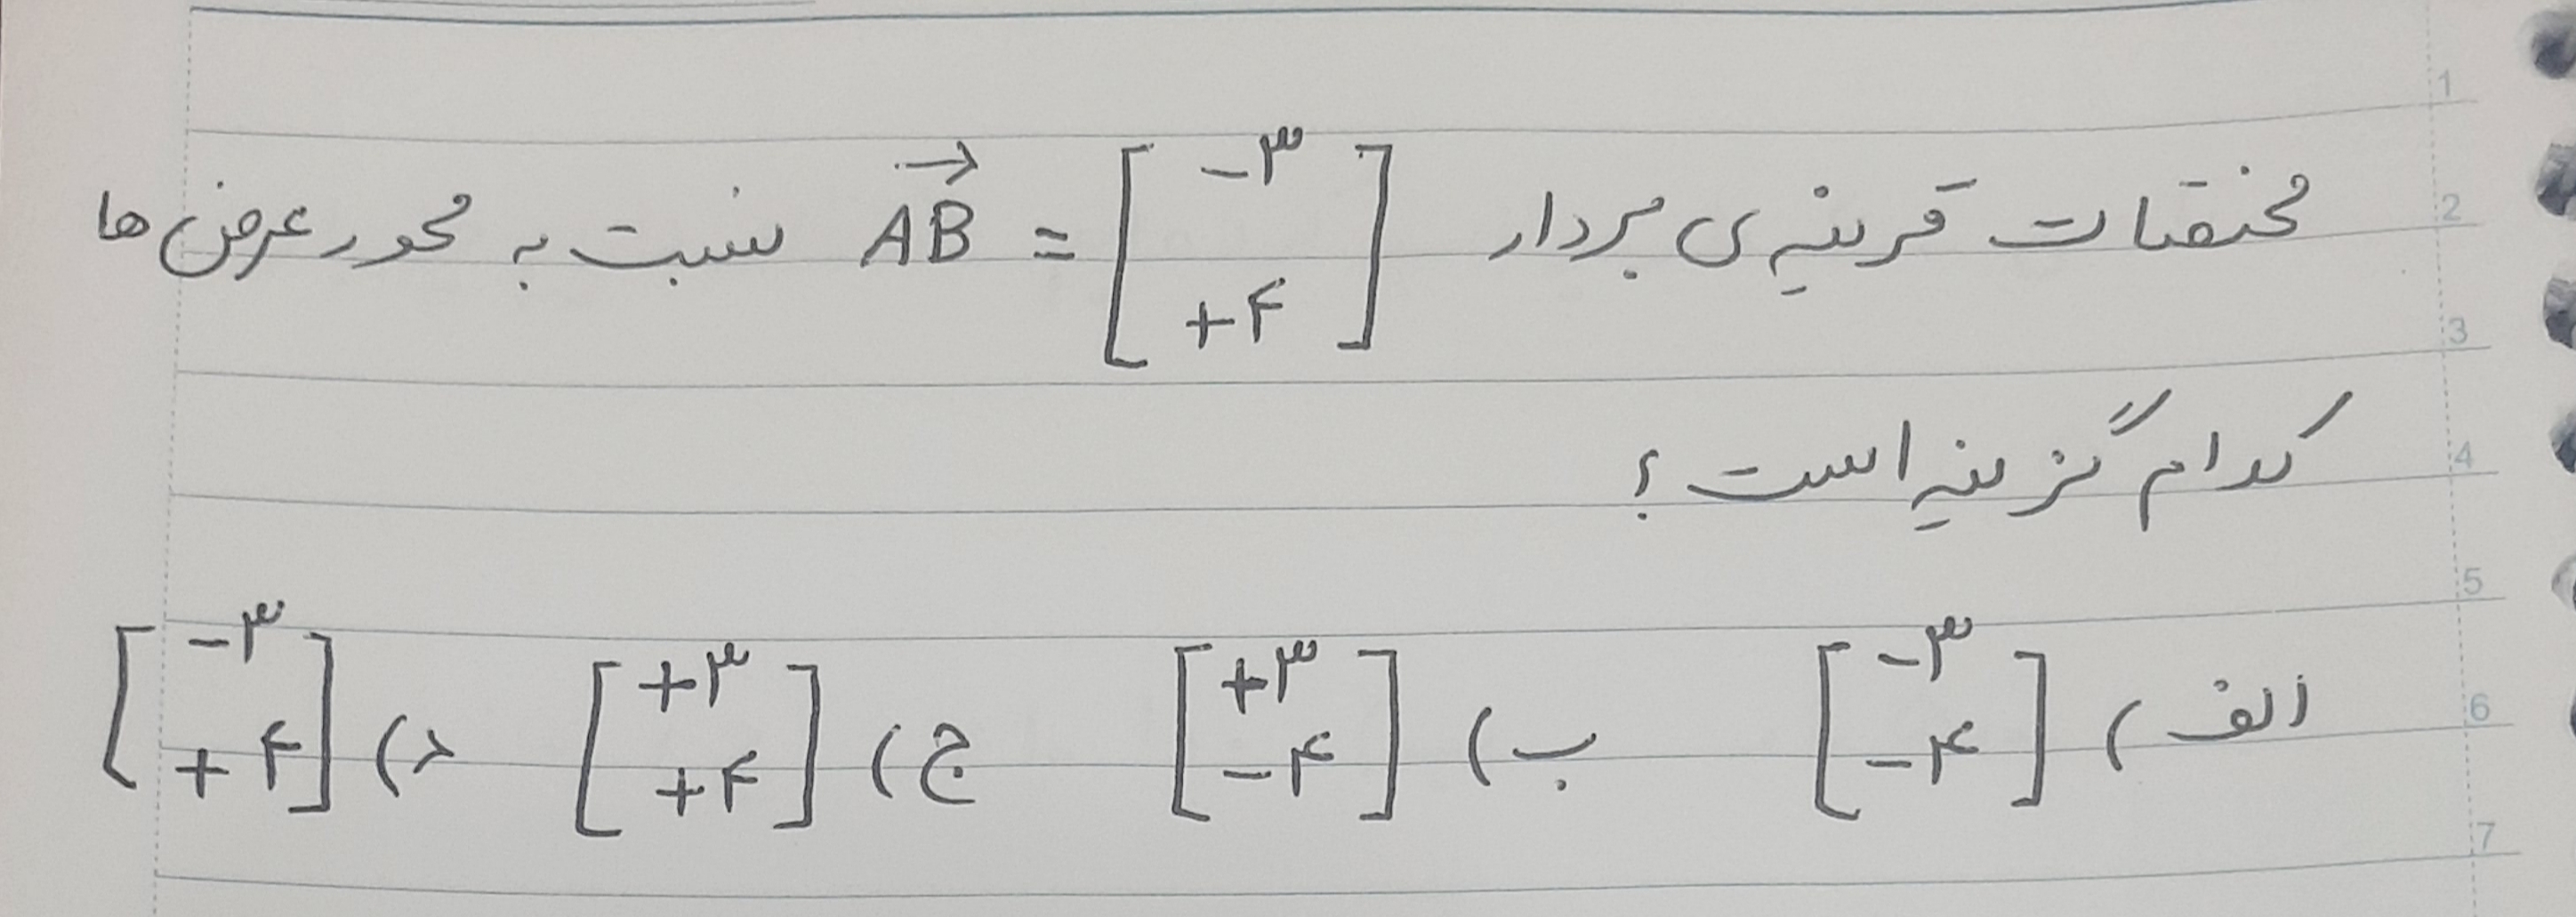 مختصات قرینه‌ی بردار [-۳ +۴] = AB نسبت به محور عرض ها
کدام گزینه است؟
الف) [-۳ -۴] ب) [+۳ -۴] ج) [+۳ +۴] د) [-۳ +۴]
1
2
3
4
5
6
7